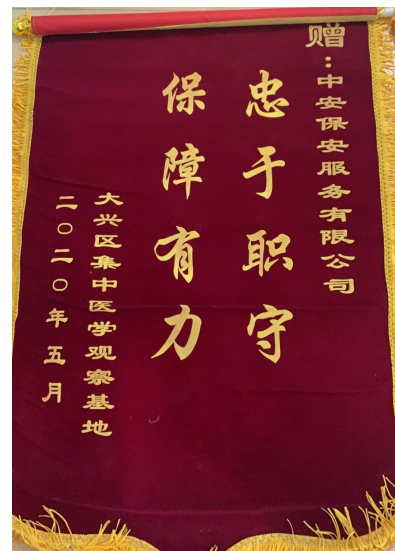 赠:中安保安服务有限公司
忠于职守
保障有力
大兴区集中医学观察基地
二〇二〇年五月